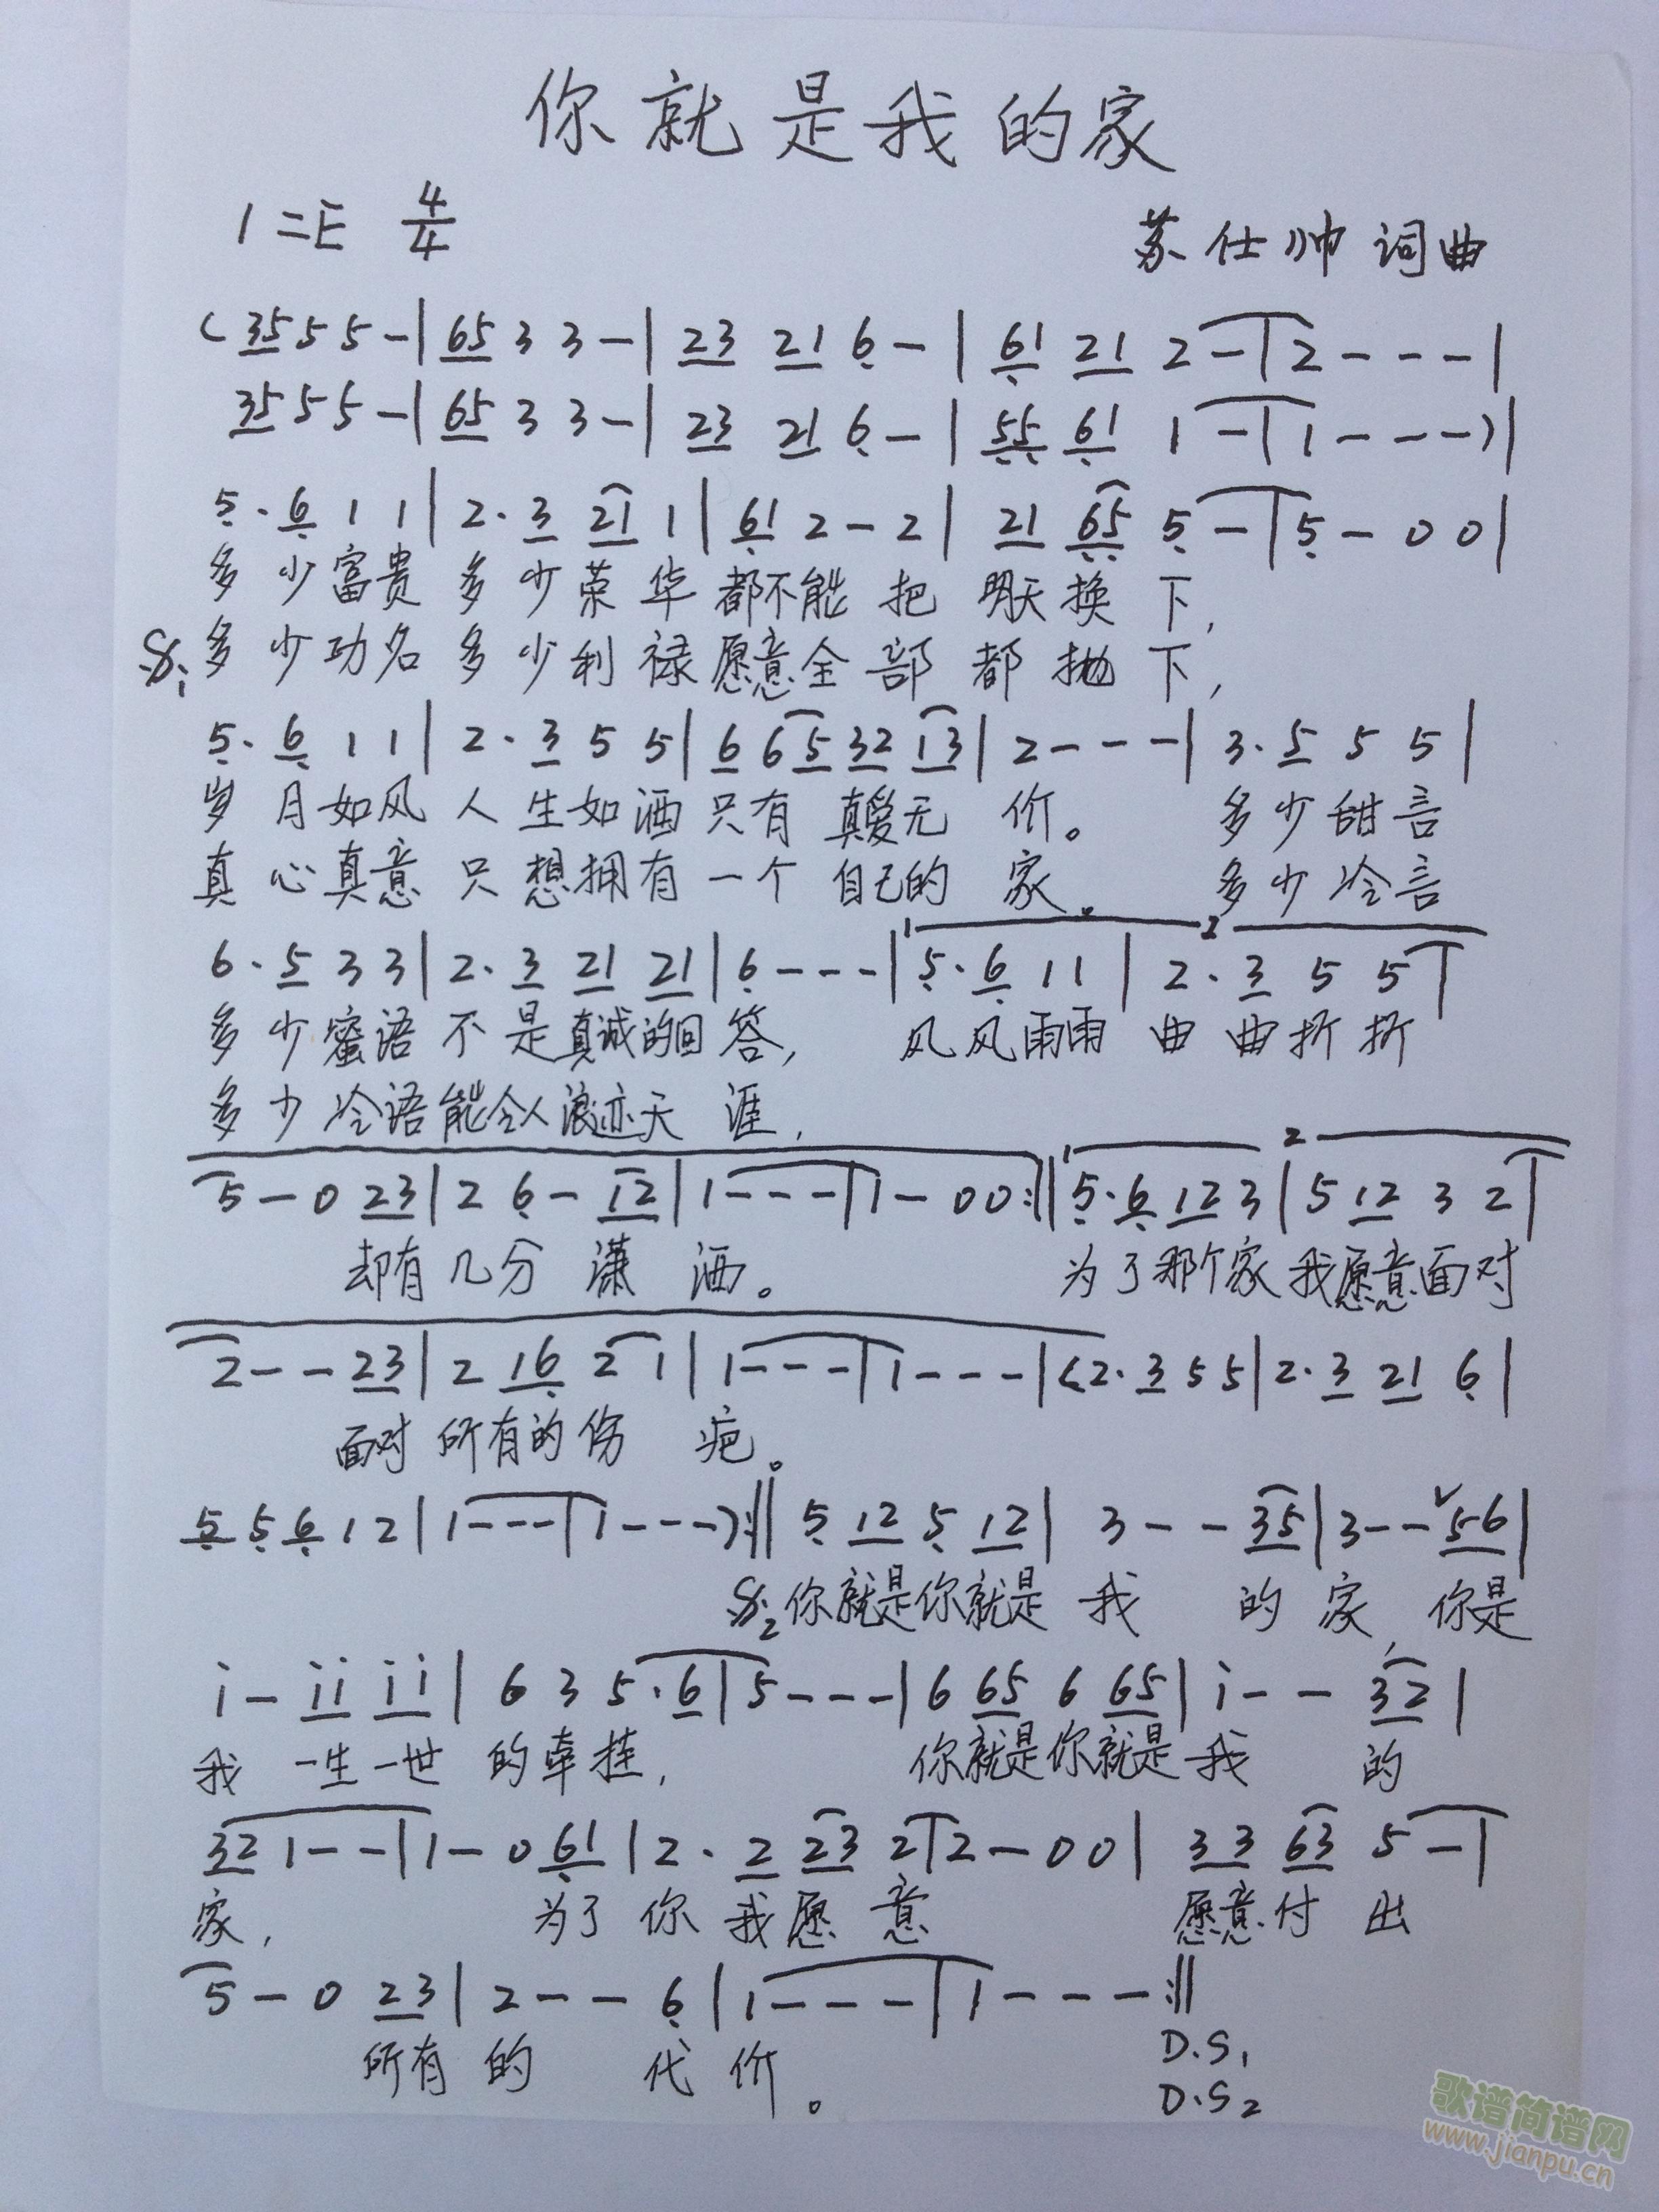 你就是我的家
1=E 4/4 苏仕帅 词曲
( 35 5 5 - | 65 3 3 - | 23 21 6 - | 61 21 2 - | 2 - - - |
35 5 5 - | 65 3 3 - | 23 21 6 - | 55 61 1 - | 1 - - - ) |
5 · 6 1 1 | 2 · 3 21 1 | 61 2 - 2 | 21 65 5 - | 5 - 0 0 |
多少富贵 多少荣华 都不能 把 明天换 下,
S1 多少功名 多少利禄 愿意全 部 都抛 下,
5 · 6 1 1 | 2 · 3 5 5 | 6 6 5 32 13 | 2 - - - | 3 · 5 5 5 |
岁月如风 人生如洒 只有 真爱无 价。 多少甜言
真心真意 只想拥有 一个 自己的 家。 多少冷言
1 2
6 · 5 3 3 | 2 · 3 21 21 | 6 - - - | 5 · 6 1 1 | 2 · 3 5 5 |
多少蜜语 不是真诚的回 答, 风风雨雨 曲曲折折
多少冷语 能令人浪迹天 涯,
1 2
5 - 0 23 | 2 6 - 12 | 1 - - - | 1 - 0 0 :|| 5 · 6 12 3 | 5 12 3 2 |
却有 几分 潇 洒。 为了那个家 我愿意面对
2 - - 23 | 2 16 2 1 | 1 - - - | 1 - - - | ( 2 · 3 5 5 | 2 · 3 21 6 |
面对 所有的伤 疤。
5 5 6 1 2 | 1 - - - | 1 - - - ) :|| 5 12 5 12 | 3 - - 35 | 3 - - ˅ 56 |
S2 你就是你就是 我 的 家, 你是
i - ii ii | 6 3 5 · 6 | 5 - - - | 6 65 6 65 | i - - 32 |
我 一生一世 的牵挂, 你就是你就是 我 的
32 1 - - | 1 - 0 61 | 2 · 2 23 2 | 2 - 0 0 | 33 63 5 - |
家, 为了 你 我愿 意 愿意付 出
5 - 0 23 | 2 - - 6 | 1 - - - | 1 - - - :||
所有 的 代 价。
D.S1
D.S2
歌谱简谱网
www.jianpu.cn